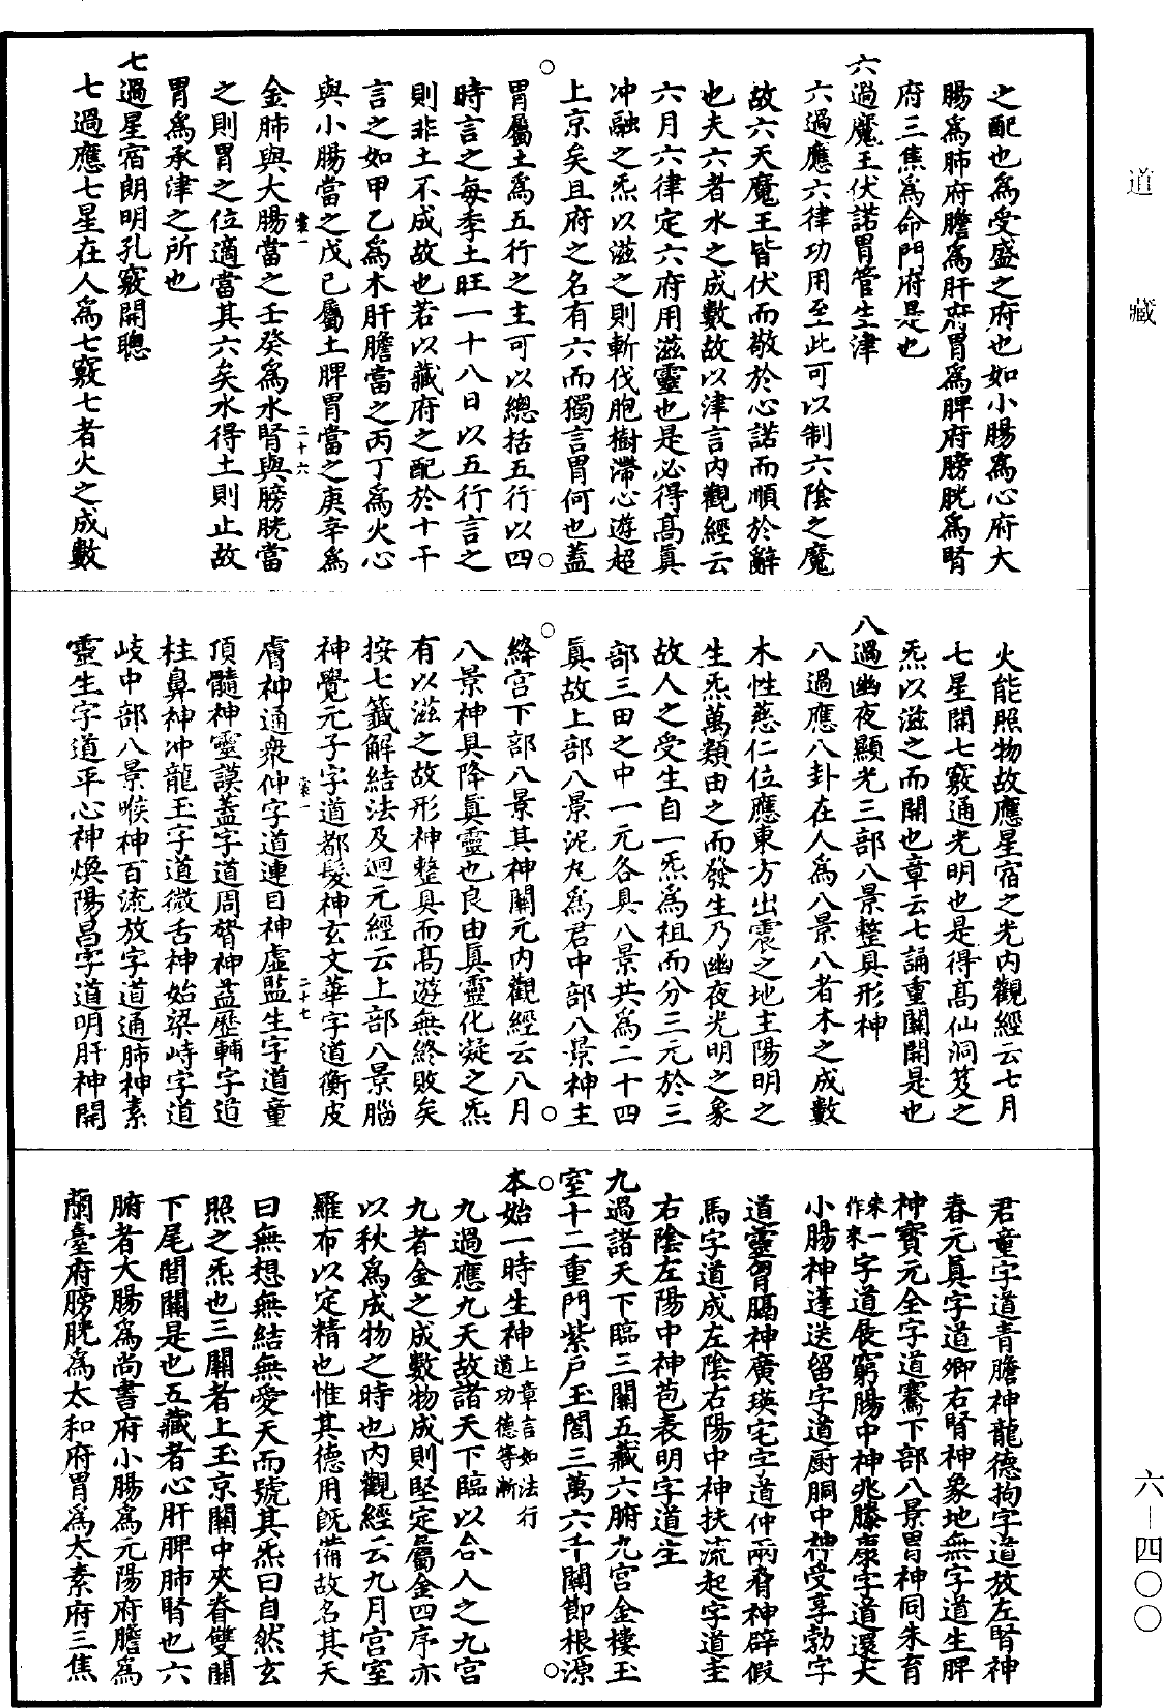 之配也為受盛之府也如小腸為心府大
腸為肺府膽為肝府胃為脾府膀胱為腎
府三焦為命門府是也
六過魔王伏諾胃管生津
六過應六律功用至此可以制六陰之魔
故六天魔王皆伏而敬於心諾而順於辭
也夫六者水之成數故以津言內觀經云
六月六律定六府用滋靈也是必得高真
冲融之炁以滋之則斬伐胞樹滯心遊超
上京矣且府之名有六而獨言胃何也蓋
胃屬土為五行之主可以總括五行以四
時言之每季土旺一十八日以五行言之
則非土不成故也若以藏府之配於十干
言之如甲乙為木肝膽當之丙丁為火心
與小腸當之戊己屬土脾胃當之庚辛為
金肺與大腸當之壬癸為水腎與膀胱當
之則胃之位適當其六矣水得土則止故
胃為承津之所也
七過星宿朗明孔竅開聰
七過應七星在人為七竅七者火之成數
二十六
火能照物故應星宿之光內觀經云七月
七星開七竅通光明也是得高仙洞笈之
炁以滋之而開也章云七誦重關開是也
八過幽夜顯光三部八景整具形神
八過應八卦在人為八景八者木之成數
木性慈仁位應東方出震之地主陽明之
生炁萬類由之而發生乃幽夜光明之象
故人之受生自一炁為祖而分三元於三
部三田之中一元各具八景共為二十四
真故上部八景泥丸為君中部八景神主
絳宮下部八景其神關元內觀經云八月
八景神具降真靈也良由真靈化凝之炁
有以滋之故形神整具而高遊無終敗矣
按七籤解結法及迴元經云上部八景腦
神覺元子字道都髮神玄文華字道衡皮
膚神通眾仲字道連目神虛監生字道童
頂髓神靈謨蓋字道周膂神益歷輔字道
柱鼻神冲龍玉字道微舌神始梁峙字道
岐中部八景喉神百流放字道通肺神素
靈生字道平心神煥陽昌字道明肝神開
二十七
君童字道青膽神龍德拘字道放左腎神
春元真字道卿右腎神象地無字道生脾
神寶元全字道騫下部八景胃神同朱育
來一作來字道展窮腸中神兆滕康字道還大
小腸神蓬送留字道廚胴中神受享勃字
道靈胃膈神廣瑛宅字道仲兩脅神辟假
馬字道成左陰右陽中神扶流起字道圭
右陰左陽中神苞表明字道生
九過諸天下臨三關五藏六腑九宮金樓玉
室十二重門紫戶玉閣三萬六千關節根源
本始一時生神上章言如法行道功德等漸
九過應九天故諸天下臨以合人之九宮
九者金之成數物成則堅定屬金四序亦
以秋為成物之時也內觀經云九月宮室
羅布以定精也惟其德用既備故名其天
曰無想無結無愛天而號其炁曰自然玄
照之炁也三關者上玉京關中夾脊雙關
下尾閭關是也五藏者心肝脾肺腎也六
腑者大腸為尚書府小腸為元陽府膽為
蘭臺府膀胱為太和府胃為太素府三焦
道藏
六—四〇〇